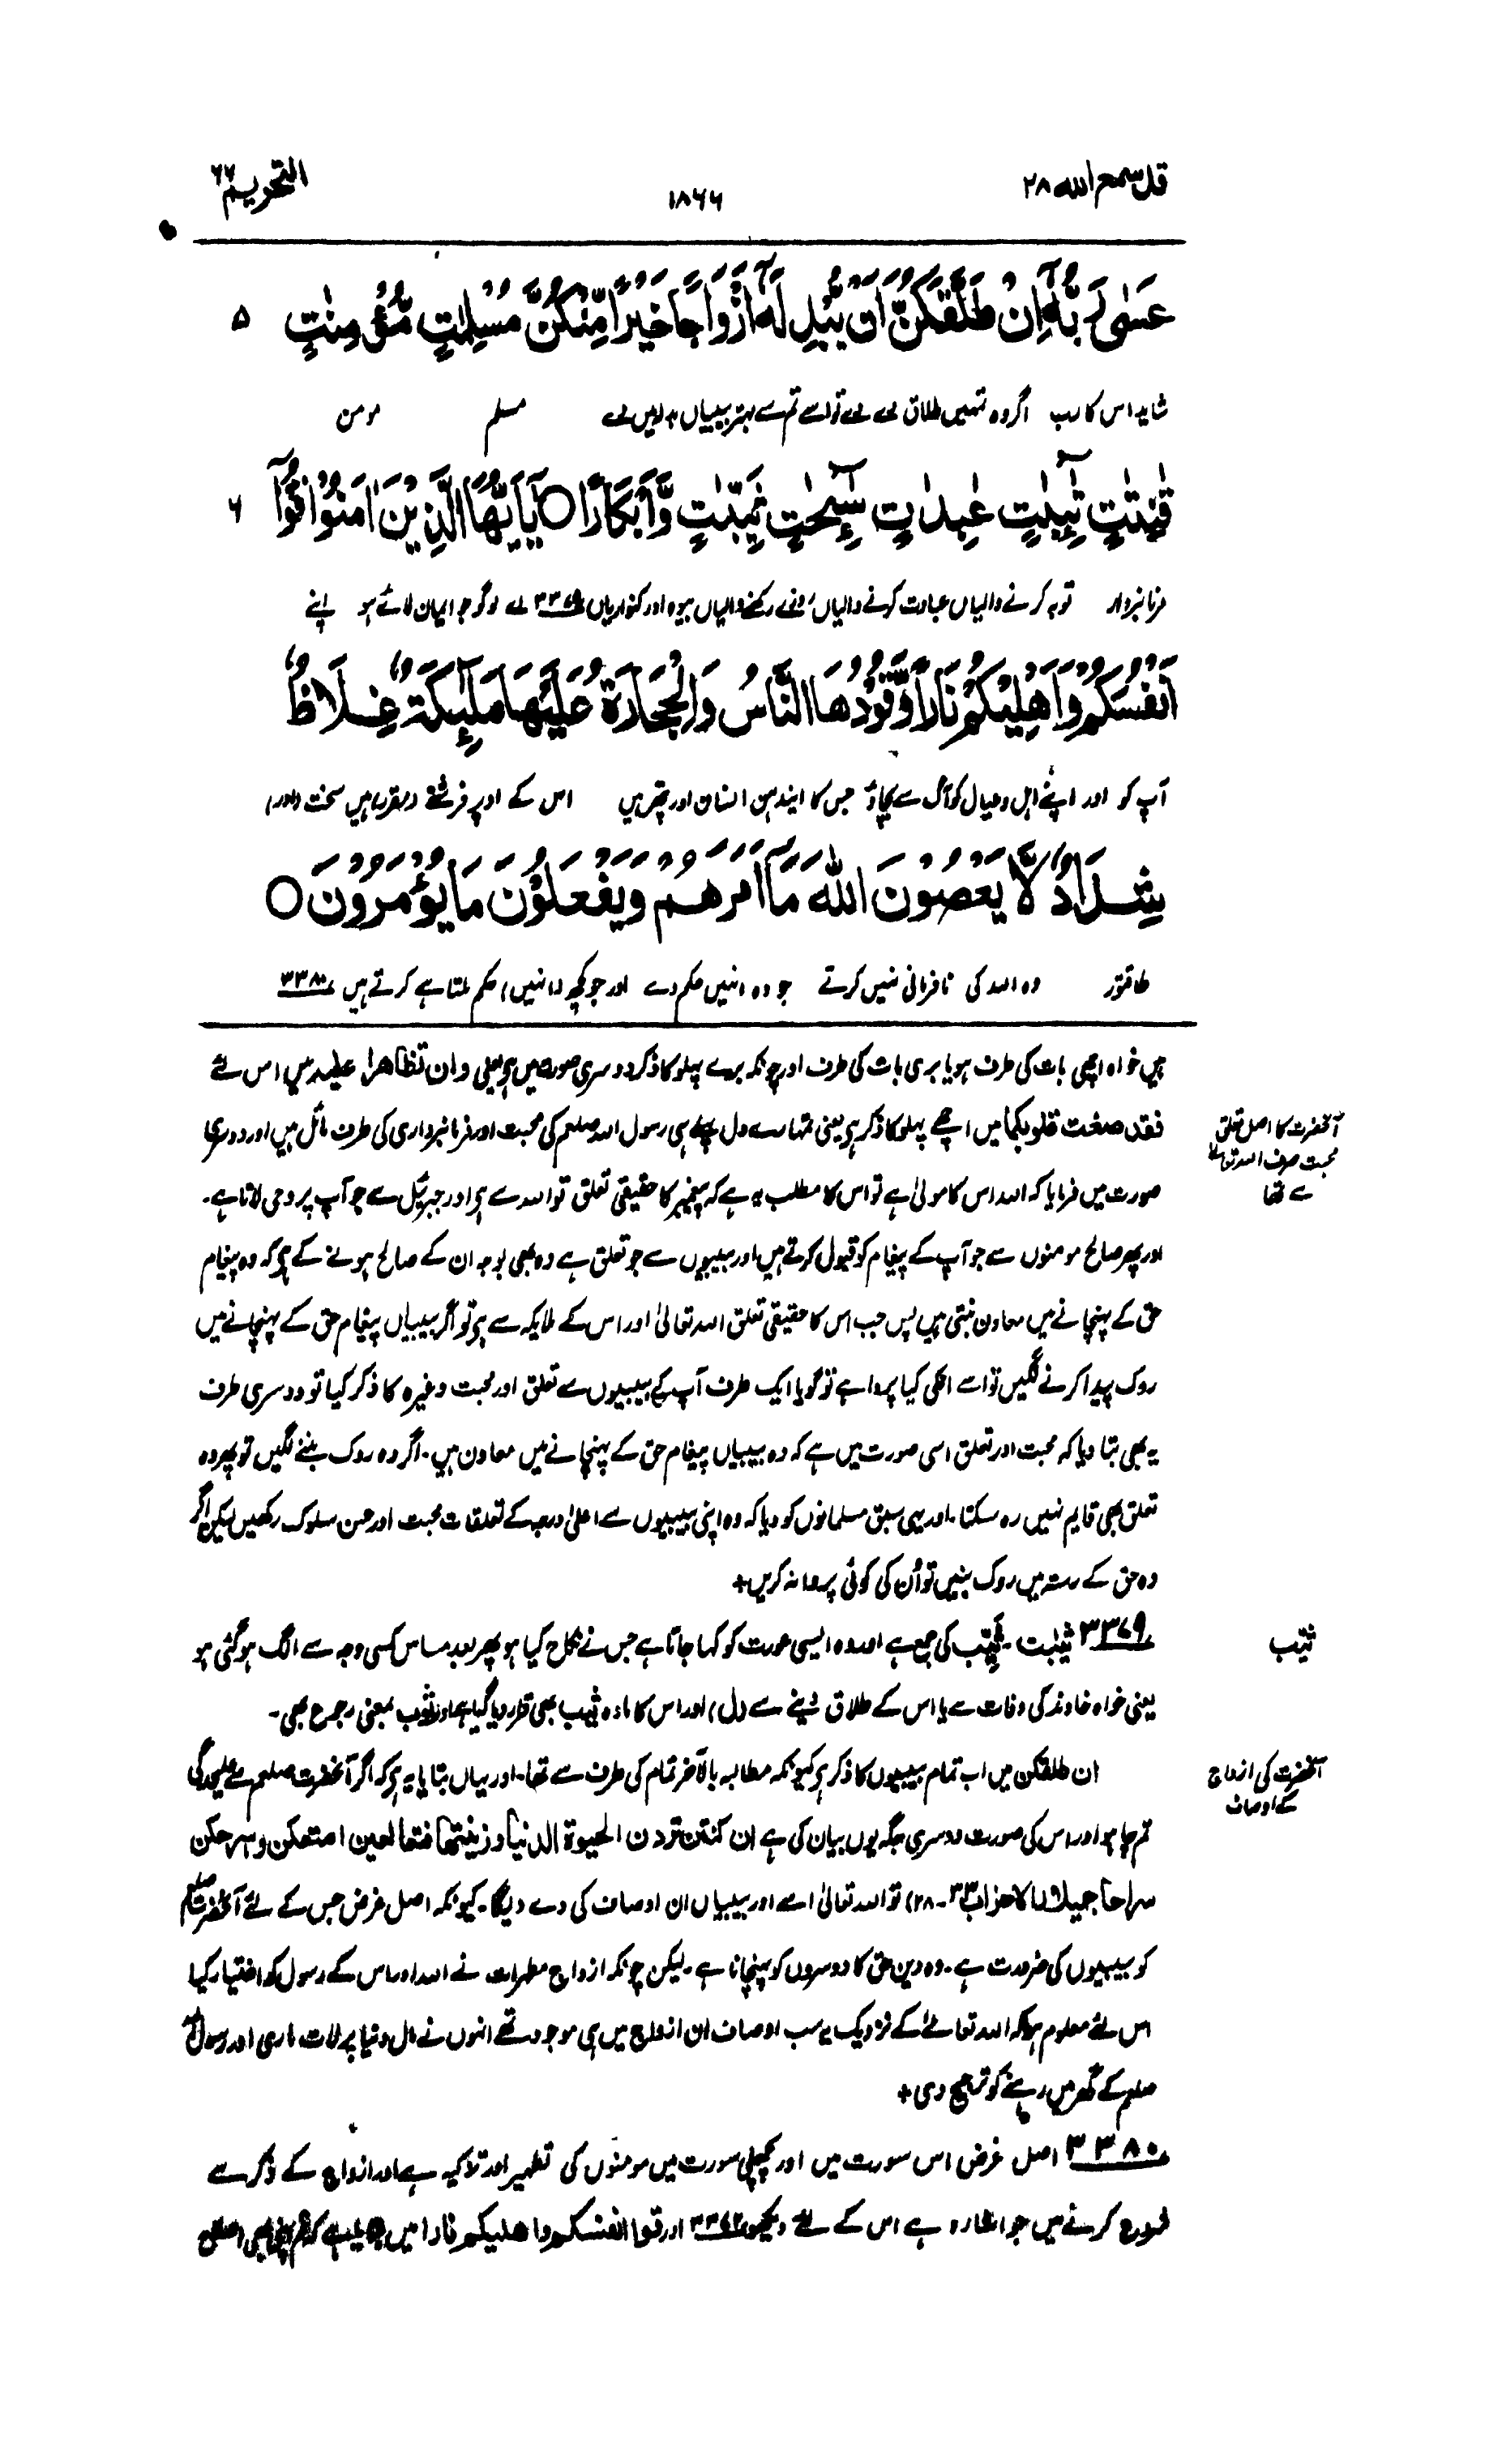 قد سمع الله ۲۸
۱۸۶۶
التحریم ۶۶
عَسٰى رَبُّهٗٓ اِنْ طَلَّقَكُنَّ اَنْ يُّبْدِلَهٗٓ اَزْوَاجًا خَيْرًا مِّنْكُنَّ مُسْلِمٰتٍ مُّؤْمِنٰتٍ ۵
شاید اس کا رب اگر وہ تمہیں طلاق دے دے تو اسے تم سے بہتر بیبیاں بدلہ میں دے مسلم مومن
قٰنِتٰتٍ تٰٓئِبٰتٍ عٰبِدٰتٍ سٰٓئِحٰتٍ ثَيِّبٰتٍ وَّاَبْكَارًا ○ يٰٓاَيُّهَا الَّذِيْنَ اٰمَنُوْا قُوْٓا ۶
فرمانبردار توبہ کرنے والیاں عبادت کرنے والیاں روزے رکھنے والیاں بیوہ اور کنواریاں ۳۳۷۹ اے لوگو جو ایمان لائے ہو اپنے
اَنْفُسَكُمْ وَاَهْلِيْكُمْ نَارًا وَّقُوْدُهَا النَّاسُ وَالْحِجَارَةُ عَلَيْهَا مَلٰٓئِكَةٌ غِلَاظٌ
آپ کو اور اپنے اہل و عیال کو آگ سے بچاؤ جس کا ایندھن انسان اور پتھر ہیں اس کے اوپر فرشتے (مقرر) ہیں سخت (اور)
شِدَادٌ لَّا يَعْصُوْنَ اللّٰهَ مَآ اَمَرَهُمْ وَيَفْعَلُوْنَ مَا يُؤْمَرُوْنَ ○
طاقتور وہ اللہ کی نافرمانی نہیں کرتے جو وہ انہیں حکم دے اور جو کچھ (انہیں) حکم ملتا ہے کرتے ہیں ۳۳۸۰
ہیں خواہ اچھی بات کی طرف ہو یا بری بات کی طرف اور چونکہ برے پہلو کا ذکر دوسری صورت میں ہے یعنی وان تظاھرا علیہ میں اس لئے
فقد صغت قلوبکما میں اچھے پہلو کا ذکر ہے یعنی تمہارے دل پہلے ہی رسول اللہ صلعم کی محبت اور فرمانبرداری کی طرف مائل ہیں اور دوسری
آنحضرت کا اصل تعلق
محبت صرف اللہ تعالےٰ
سے تھا
صورت میں فرمایا کہ اللہ اس کا مولیٰ ہے تو اس کا مطلب یہ ہے کہ پیغمبر کا حقیقی تعلق تو اللہ سے ہے اور جبرئیل سے جو آپ پر وحی لاتا ہے۔
اور پھر صالح مومنوں سے جو آپ کے پیغام کو قبول کرتے ہیں اور بیبیوں سے جو تعلق ہے وہ بھی بوجہ ان کے صالح ہونے کے ہے کہ وہ پیغام
حق کے پہنچانے میں معاون بنتی ہیں پس جب اس کا حقیقی تعلق اللہ تعالیٰ اور اس کے ملایکہ سے ہے تو اگر بیبیاں پیغام حق کے پہنچانے میں
روک پیدا کرنے لگیں تو اسے انکی کیا پروا ہے تو گویا ایک طرف آپ کے بیبیوں سے تعلق اور محبت وغیرہ کا ذکر کیا تو دوسری طرف
یہ بھی بتا دیا کہ محبت اور تعلق اسی صورت میں ہے کہ وہ بیبیاں پیغام حق کے پہنچانے میں معاون ہیں۔ اگر وہ روک بننے لگیں تو پھر وہ
تعلق بھی قایم نہیں رہ سکتا۔ اور یہی سبق مسلمانوں کو دیا کہ وہ اپنی بیبیوں سے اعلیٰ درجہ کے تعلقات محبت اور حسن سلوک رکھیں لیکن اگر
وہ حق کے رستہ میں روک بنیں تو اُن کی کوئی پروا نہ کریں+
۳۳۷۹ ثیبٰت۔ ثَیِّب کی جمع ہے اور وہ ایسی عورت کو کہا جاتا ہے جس نے نکاح کیا ہو پھر بعد مساس کسی وجہ سے الگ ہو گئی ہو
ثیّب
یعنی خواہ خاوند کی وفات سے یا اس کے طلاق دینے سے (ل) اور اس کا مادہ ثیب بھی قرار دیا گیا ہے اور ثوب بمعنی رجوع بھی۔
ان طلقکن میں اب تمام بیبیوں کا ذکر ہے کیونکہ مطالبہ بالآخر تمام کی طرف سے تھا۔ اور یہاں بتایا یہ ہے کہ اگر آنحضرت صلعم سے علیحدگی
آنحضرت کی ازواج
کے اوصاف
تم چاہو اور اس کی صورت دوسری جگہ یوں بیان کی ہے ان کنتن تردن الحیوۃ الدنیا و زینتھا فتعالین امتعکن و اسرحکن
سراحا جمیلا (الاحزاب ۳۳۔ ۲۸) تو اللہ تعالیٰ اسے اور بیبیاں ان اوصاف کی دے دیگا۔ کیونکہ اصل غرض جس کے لئے آنحضرت صلعم
کو بیبیوں کی ضرورت ہے۔ وہ دین حق کا دوسروں کو پہنچانا ہے۔ لیکن چونکہ ازواج مطہرات نے اللہ اور اس کے رسول کو اختیار کیا
اس لئے معلوم ہوا کہ اللہ تعالےٰ کے نزدیک یہ سب اوصاف ان ازواج میں ہی موجود تھے انہوں نے مال دنیا پر لات ماری اور رسول اللہ
صلعم کے گھر میں رہنے کو ترجیح دی+
۳۳۸۰ اصل غرض اس سورت میں اور پچھلی سورت میں مومنوں کی تطہیر اور تزکیہ ہے اور ازواج کے ذکر سے
شروع کرنے میں جو اشارہ ہے اس کے لئے دیکھو ۳۳۷۲ اور قوا انفسکم و اھلیکم نارا میں